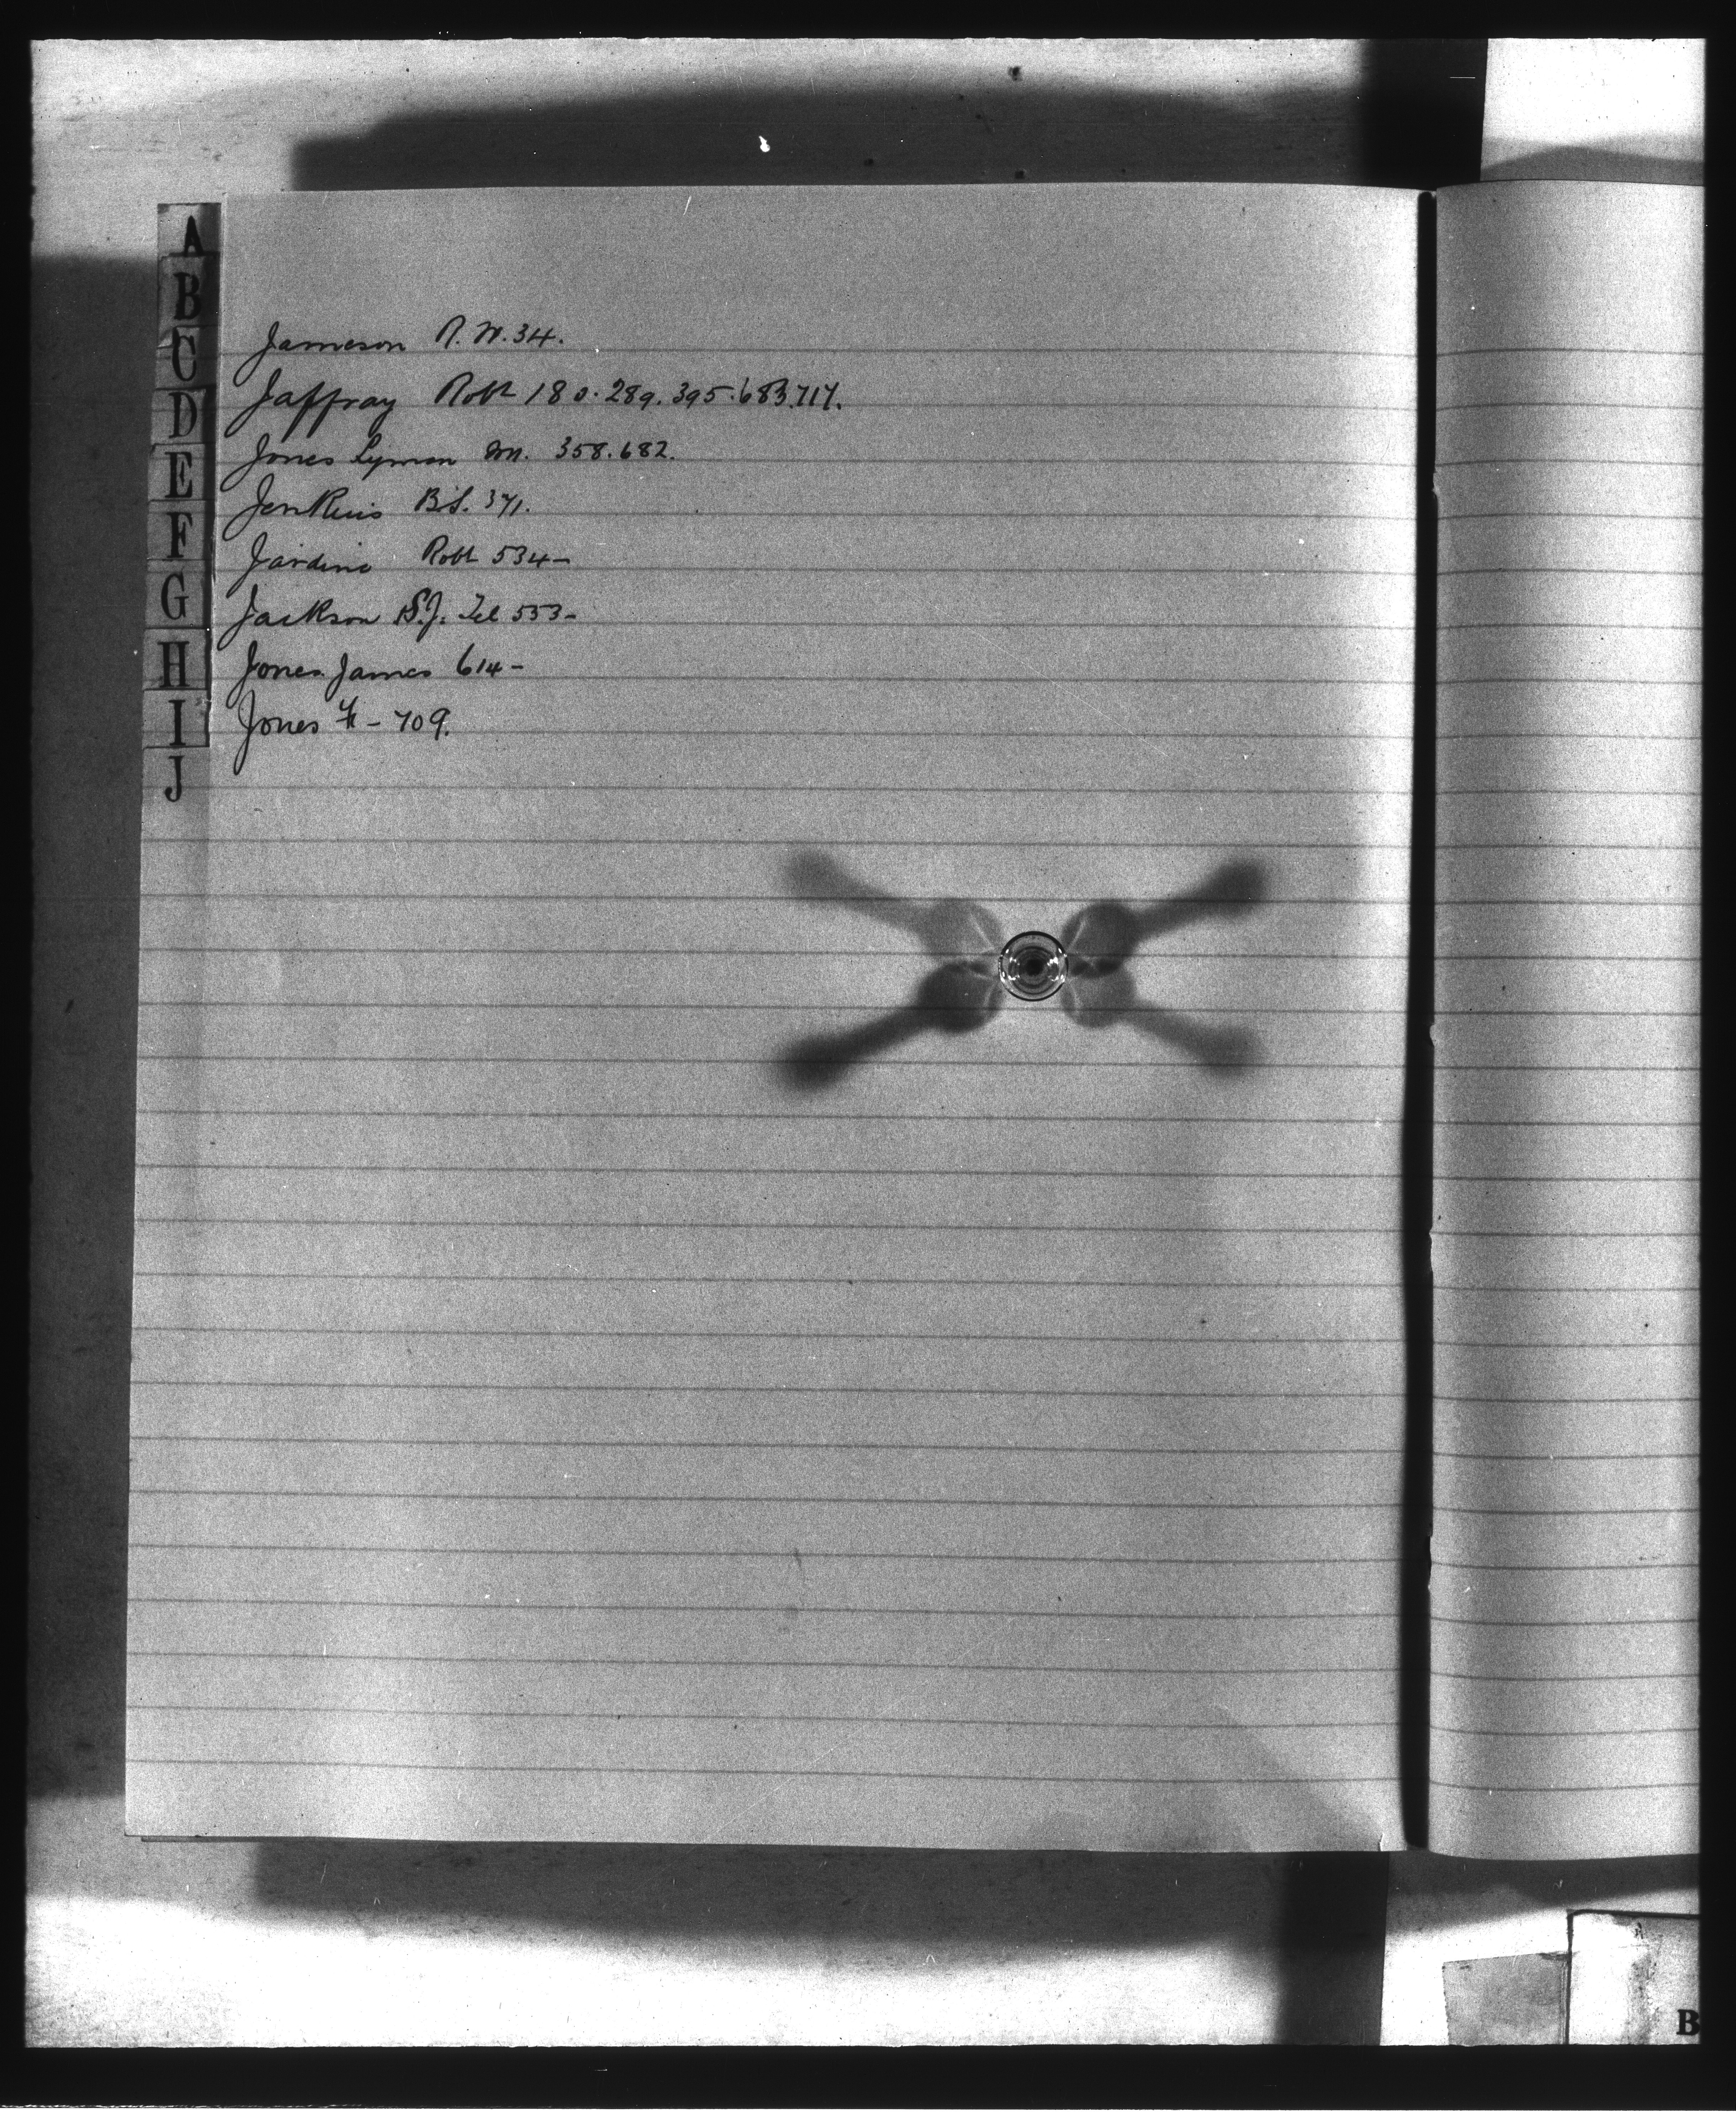 A
B
C
D
E
F
G
H
I
J
Jameson R. W. 34.
Jaffray Robt 180. 289. 395. 683. 717.
Jones Lyman M. 358. 682.
Jenkins B.S. 371.
Jardine Robt 534-
Jackson S.J. Tel 553-
Jones James 614-
Jones - 709.
B